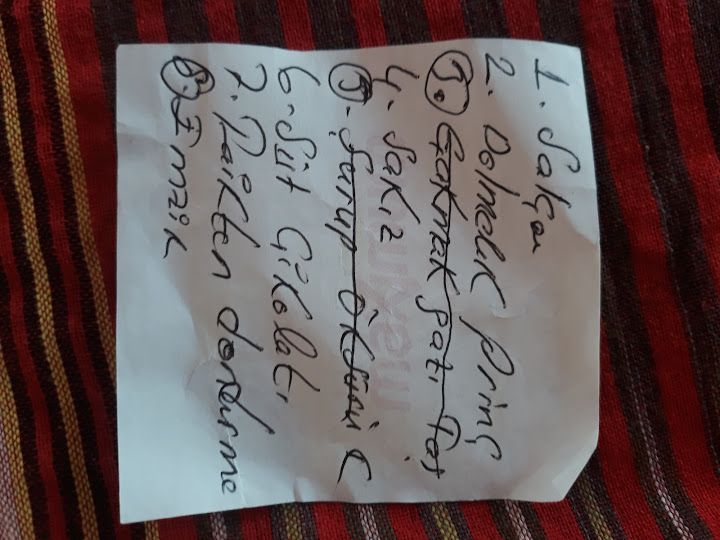 1. Salça
2. Dolmelik Prinç
3. Çakmak gatı Taş
4. Sakız
5. Şurup Öksürü C
6. Süt Çikolatı
7. Paikten dondurme
8. Emzik